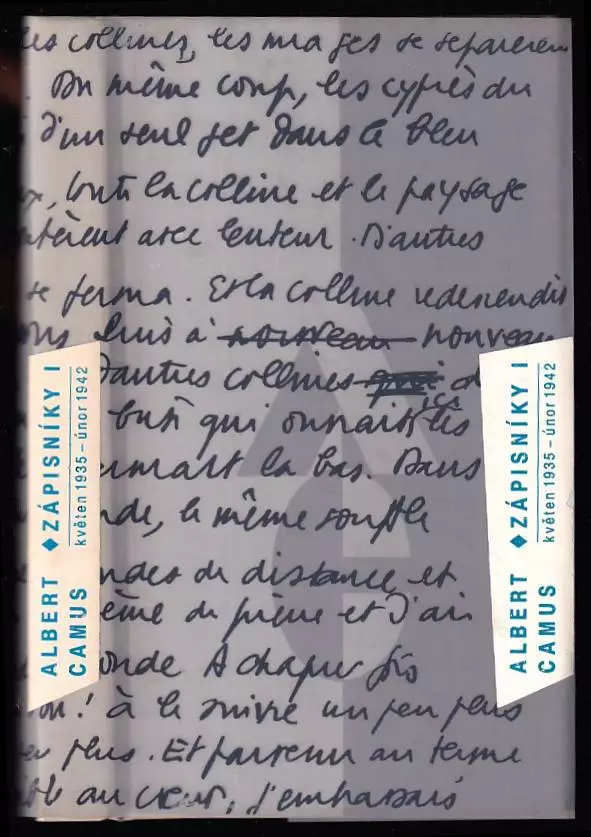 les collines, les nuages se séparèrent
. Du même coup, les cyprès du
d'un seul jet dans le bleu
, toute la colline et le paysage
avec lenteur. D'autres
se ferma. Et la colline redescendit
puis à nouveau nouveau
d'autres collines
ici
qui ouvrait les
fermait là bas. Dans
, le même souffle
de distance et
thème de pierre et d'air
A chaque fois
! à le suivre un peu plus
plus. Et parvenu au terme
au cœur, j'embrassais
ALBERT ◆ ZÁPISNÍKY I
CAMUS květen 1935 – únor 1942
ALBERT ◆ ZÁPISNÍKY I
CAMUS květen 1935 – únor 1942